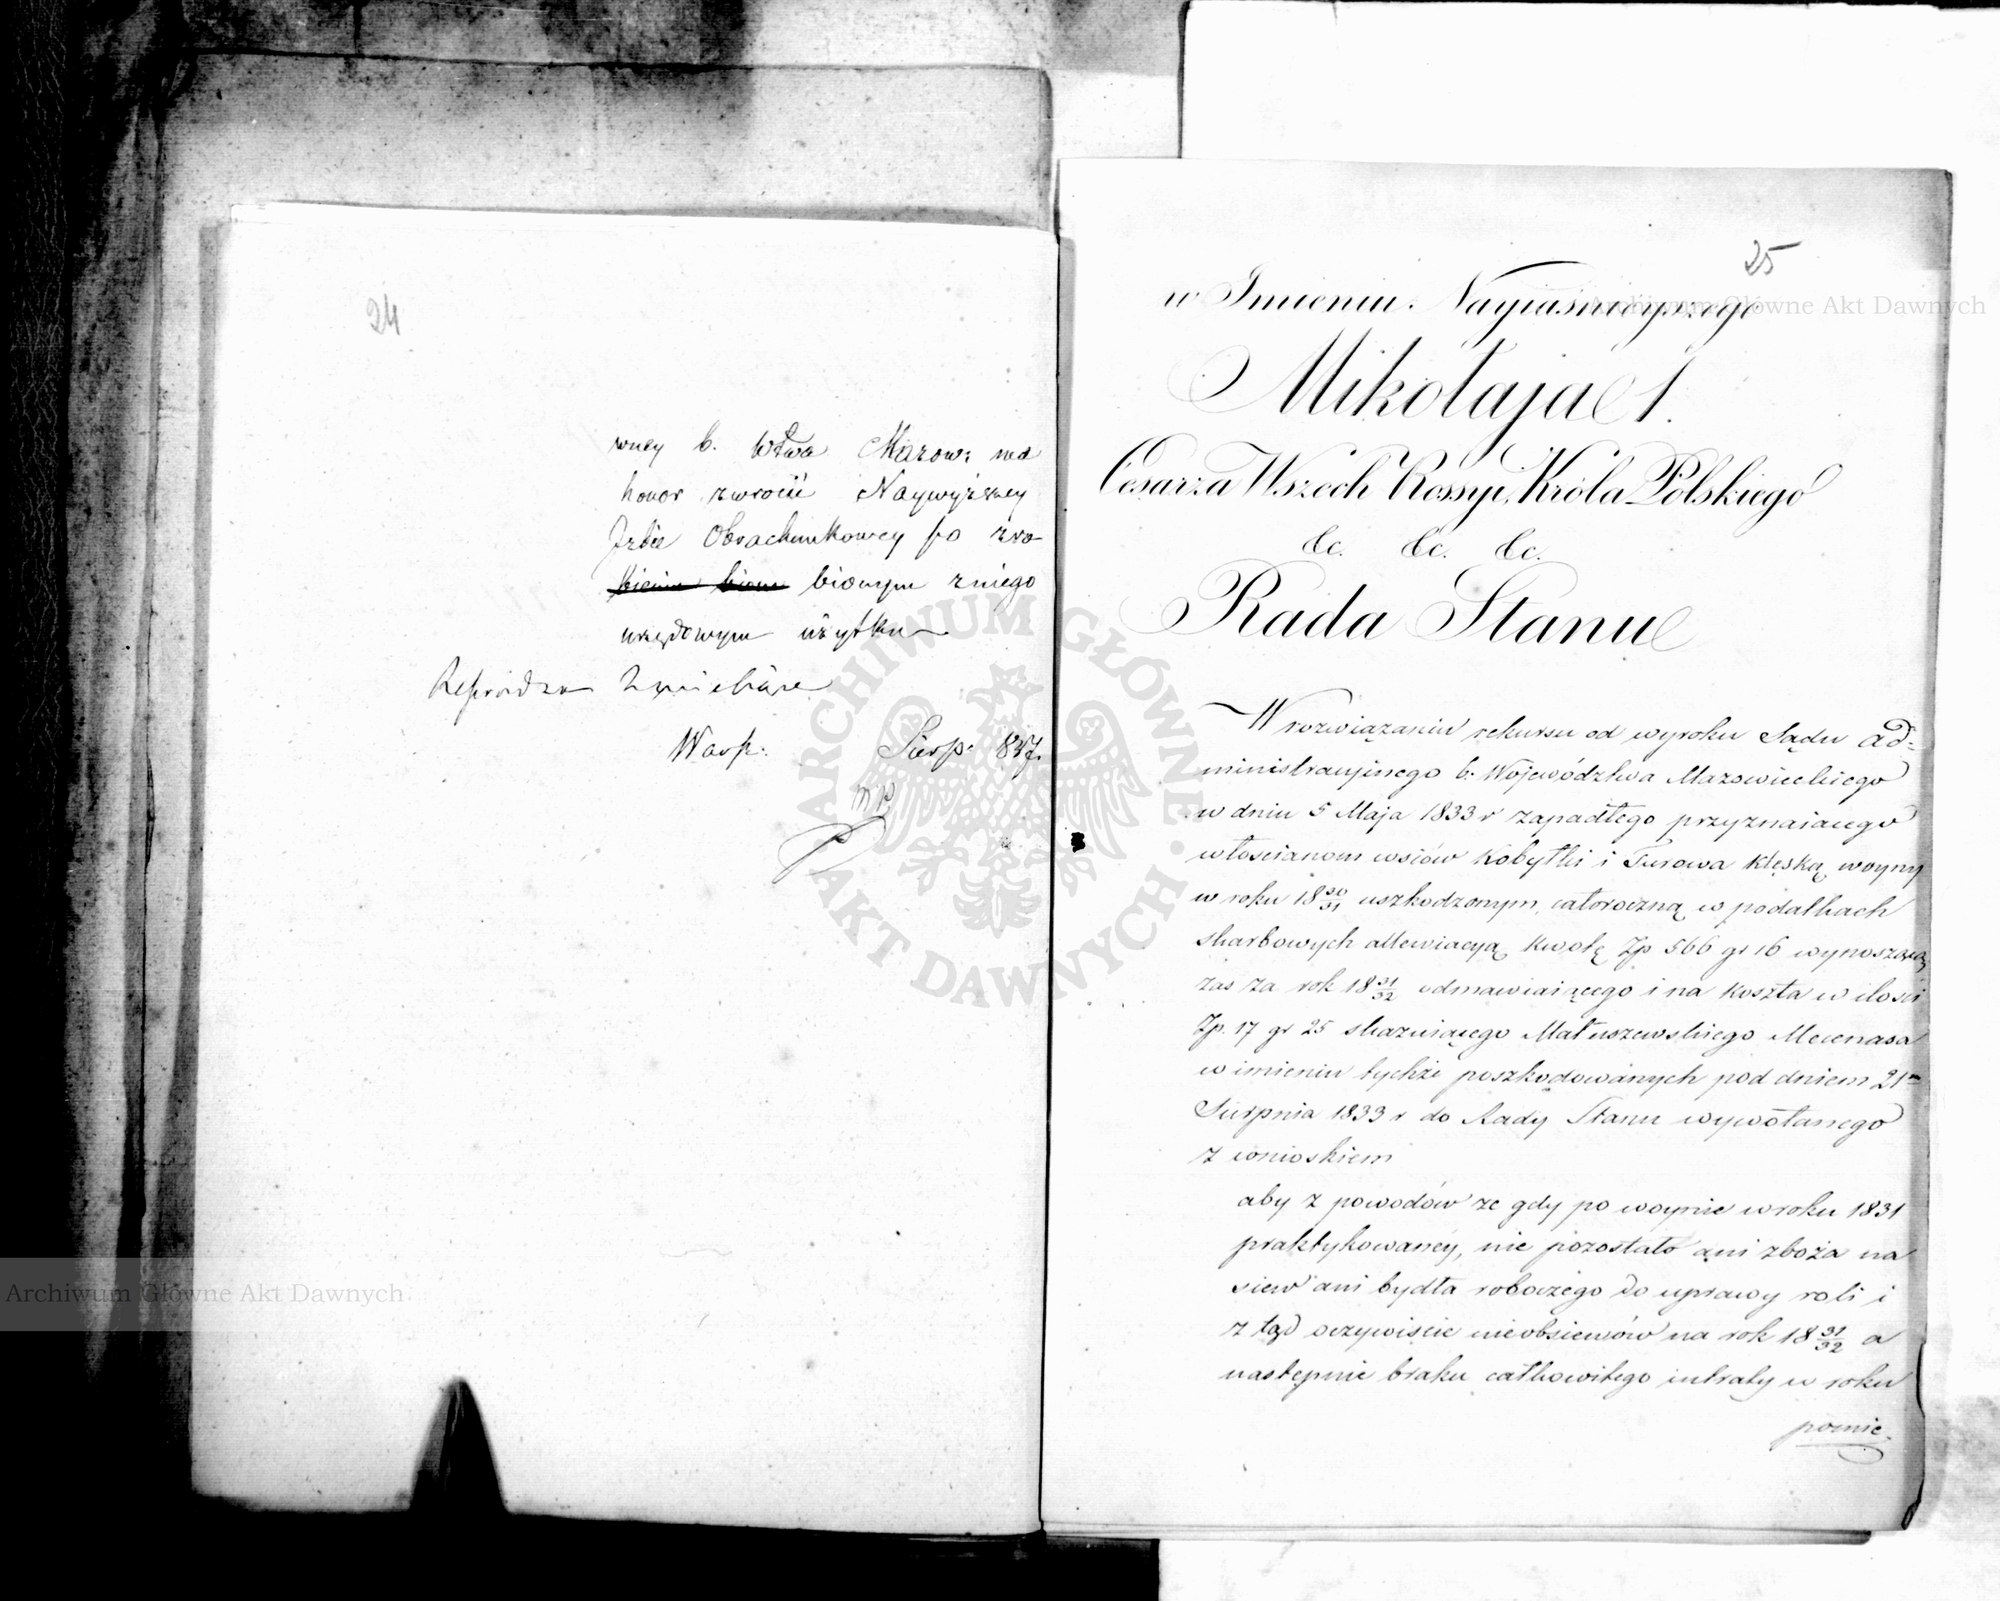 24
wney b. Wtwa Mazow: ma
honor zwrócić Naywyższey
Izbie Obrachunkowey po zro-
bionym zniego
urzędowym użytku
Warsz: Sierp: 1837.
mp
25
w Imieniu Nayiaśnieyszego
Mikołaja 1.
Cesarza Wszech Rossyi, Króla Polskiego
&c. &c. &c.
Rada Stanu
W rozwiązaniu rekursu od wyroku Sądu Ad-
ministracyinego b. Województwa Mazowieckiego
w dniu 5 Maja 1833 r zapadłego przyznaiącego
włościanom wsiów Kobyłki i Turowa klęską woyny
w roku 18 30/31 uszkodzonym, całoroczną w podatkach
skarbowych allewiacyą kwotę Zp 566 gr 16 wynoszącą
zas za rok 18 31/32 odmawiaiącego i na koszta w ilosci
Zp. 17 gr 25 skazuiącego Matuszewskiego Mecenasa
w imieniu tychże poszkodowanych pod dniem 21m
Sierpnia 1833 r do Rady Stanu wywołanego
z wnioskiem
aby z powodów ze gdy po woynie w roku 1831
praktykowanéy, nie pozostało ani zboża na
siew ani bydła roboczego do uprawy roli i
z tąd oczywiscie nieobsiewów na rok 18 31/32 a
następnie braku całkowitego intraty w roku
pomie-
Archiwum Główne Akt Dawnych
Archiwum Główne Akt Dawnych
ARCHIWUM GŁÓWNE AKT DAWNYCH